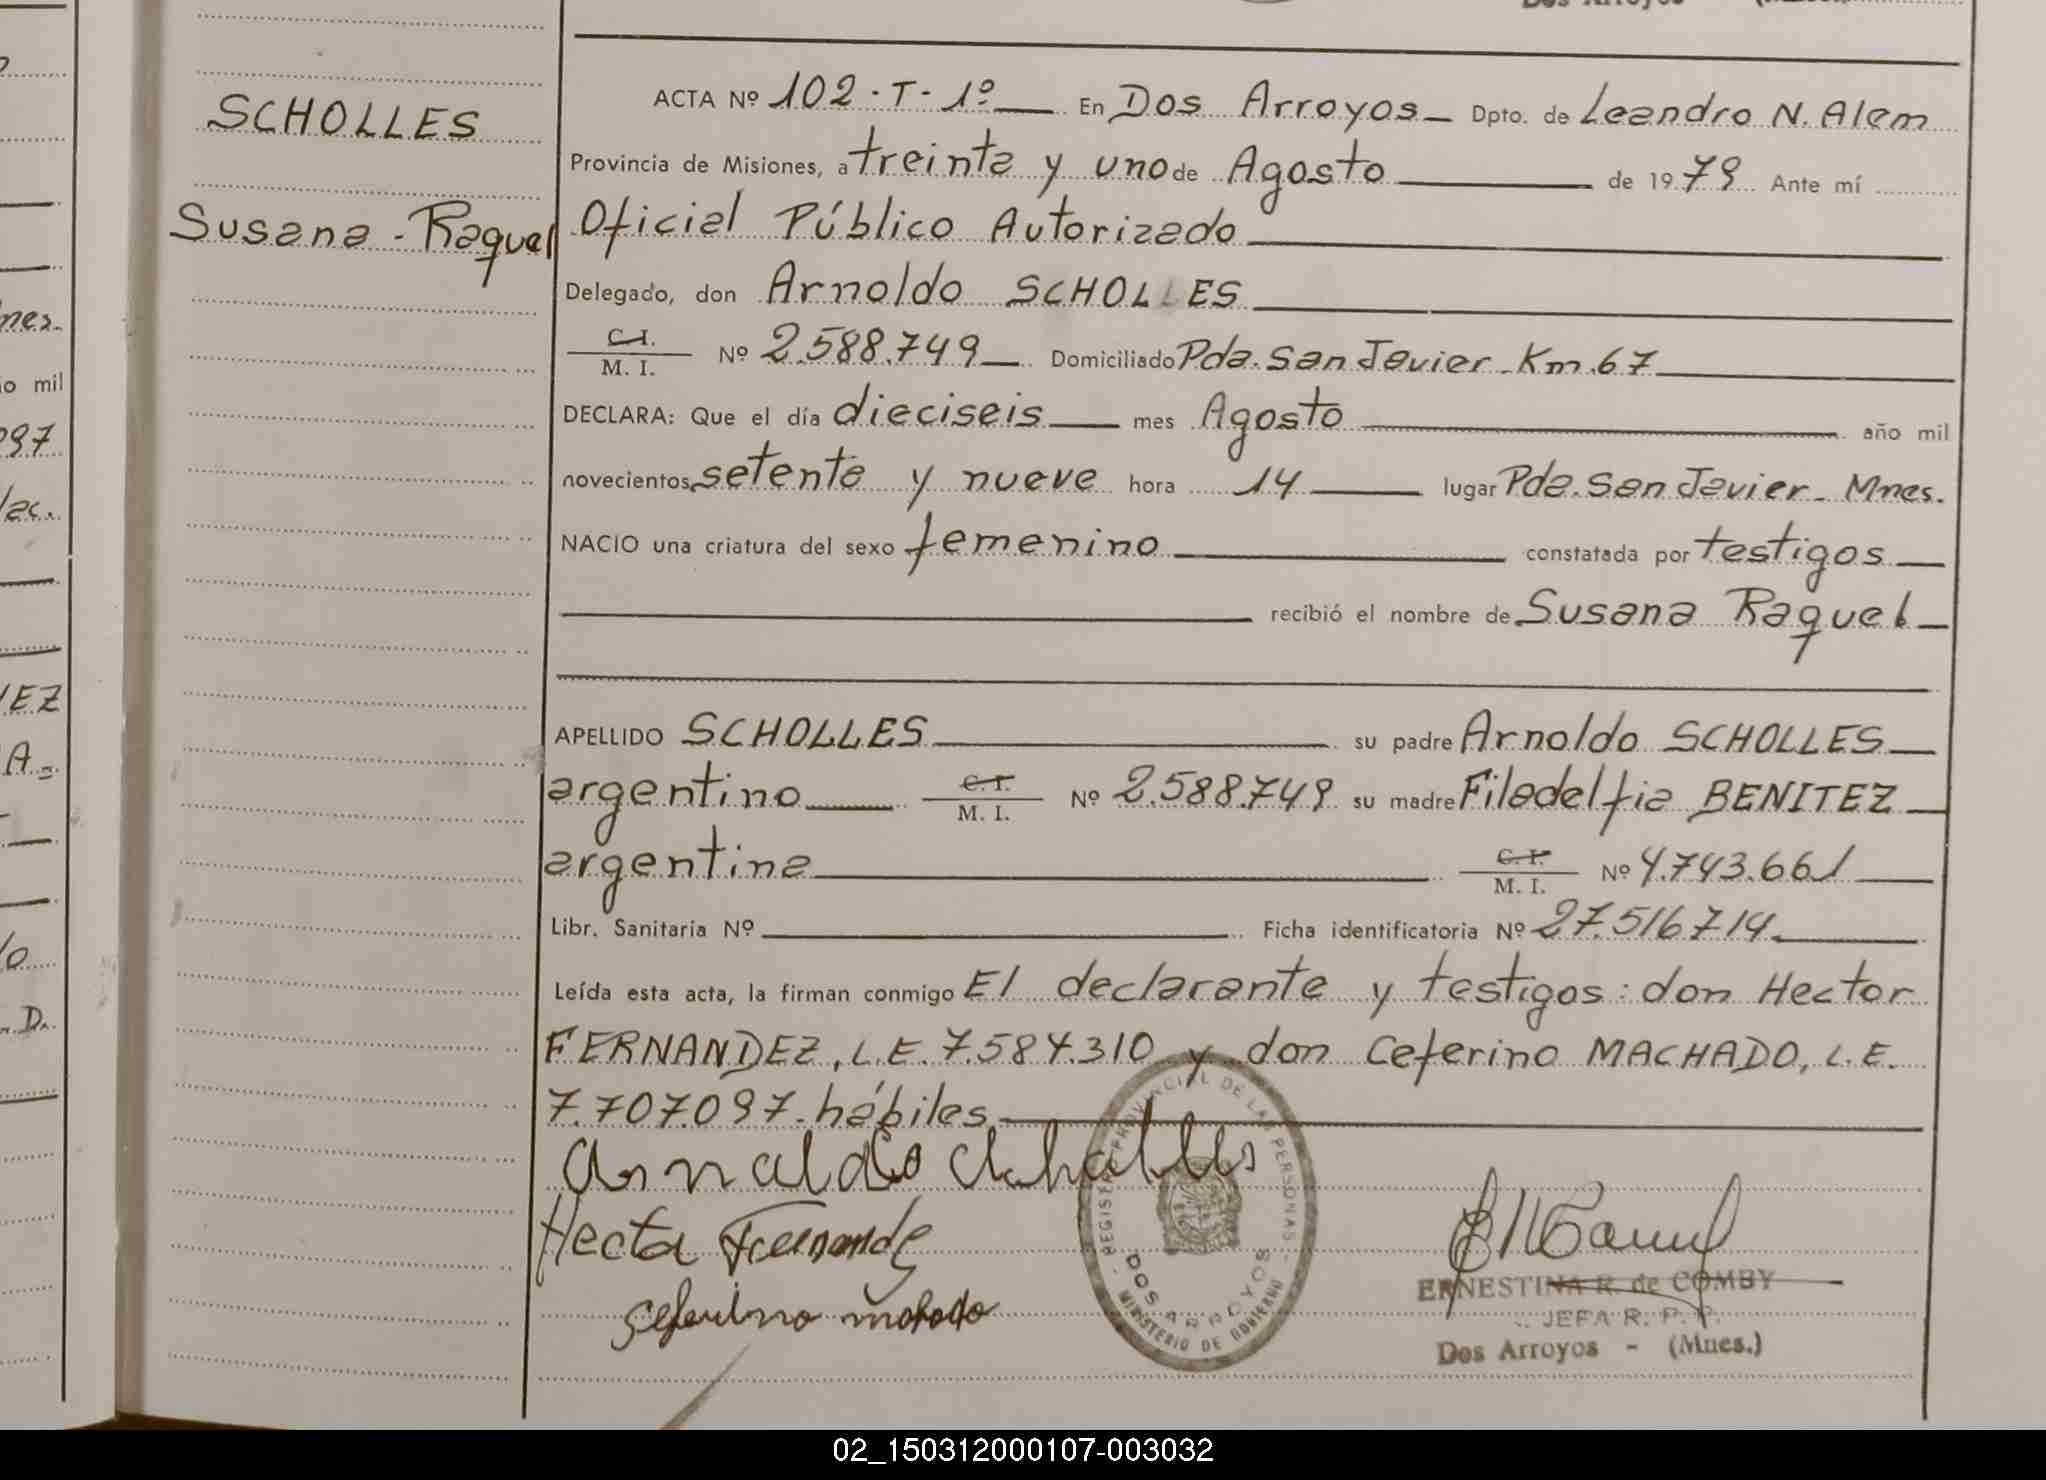 Dos Arroyos
SCHOLLES
Susana - Raquel
ACTA Nº 102 - T - 1º En Dos Arroyos Dpto. de Leandro N. Alem
Provincia de Misiones, a treinta y uno de Agosto de 1979 Ante mí
Oficial Público Autorizado
Delegado, don Arnoldo SCHOLLES
C.I.
M. I. Nº 2.588.749 Domiciliado Pda. San Javier - Km. 67
DECLARA: Que el día dieciseis mes Agosto año mil
novecientos setenta y nueve hora 14 lugar Pda. San Javier - Mnes.
NACIO una criatura del sexo femenino constatada por testigos
recibió el nombre de Susana Raquel
APELLIDO SCHOLLES su padre Arnoldo SCHOLLES
argentino C.I. M. I. Nº 2.588.749 su madre Filadelfia BENITEZ
argentina C.I. M. I. Nº 4.743.661
Libr. Sanitaria Nº Ficha identificatoria Nº 27.516.714
Leída esta acta, la firman conmigo El declarante y testigos: don Hector
FERNANDEZ, L.E. 7.584.310 y don Ceferino MACHADO, L.E.
7.707.097. hábiles
Arnaldo
Hector Fernandez
Seferino
REGISTRO PROVINCIAL DE LAS PERSONAS
DOS ARROYOS
MINISTERIO DE GOBIERNO
ERNESTINA R. de COMBY
JEFA R. P. P.
Dos Arroyos - (Mnes.)
nes.
io mil
097
lac.
EZ
A
lo
D.
02_150312000107-003032